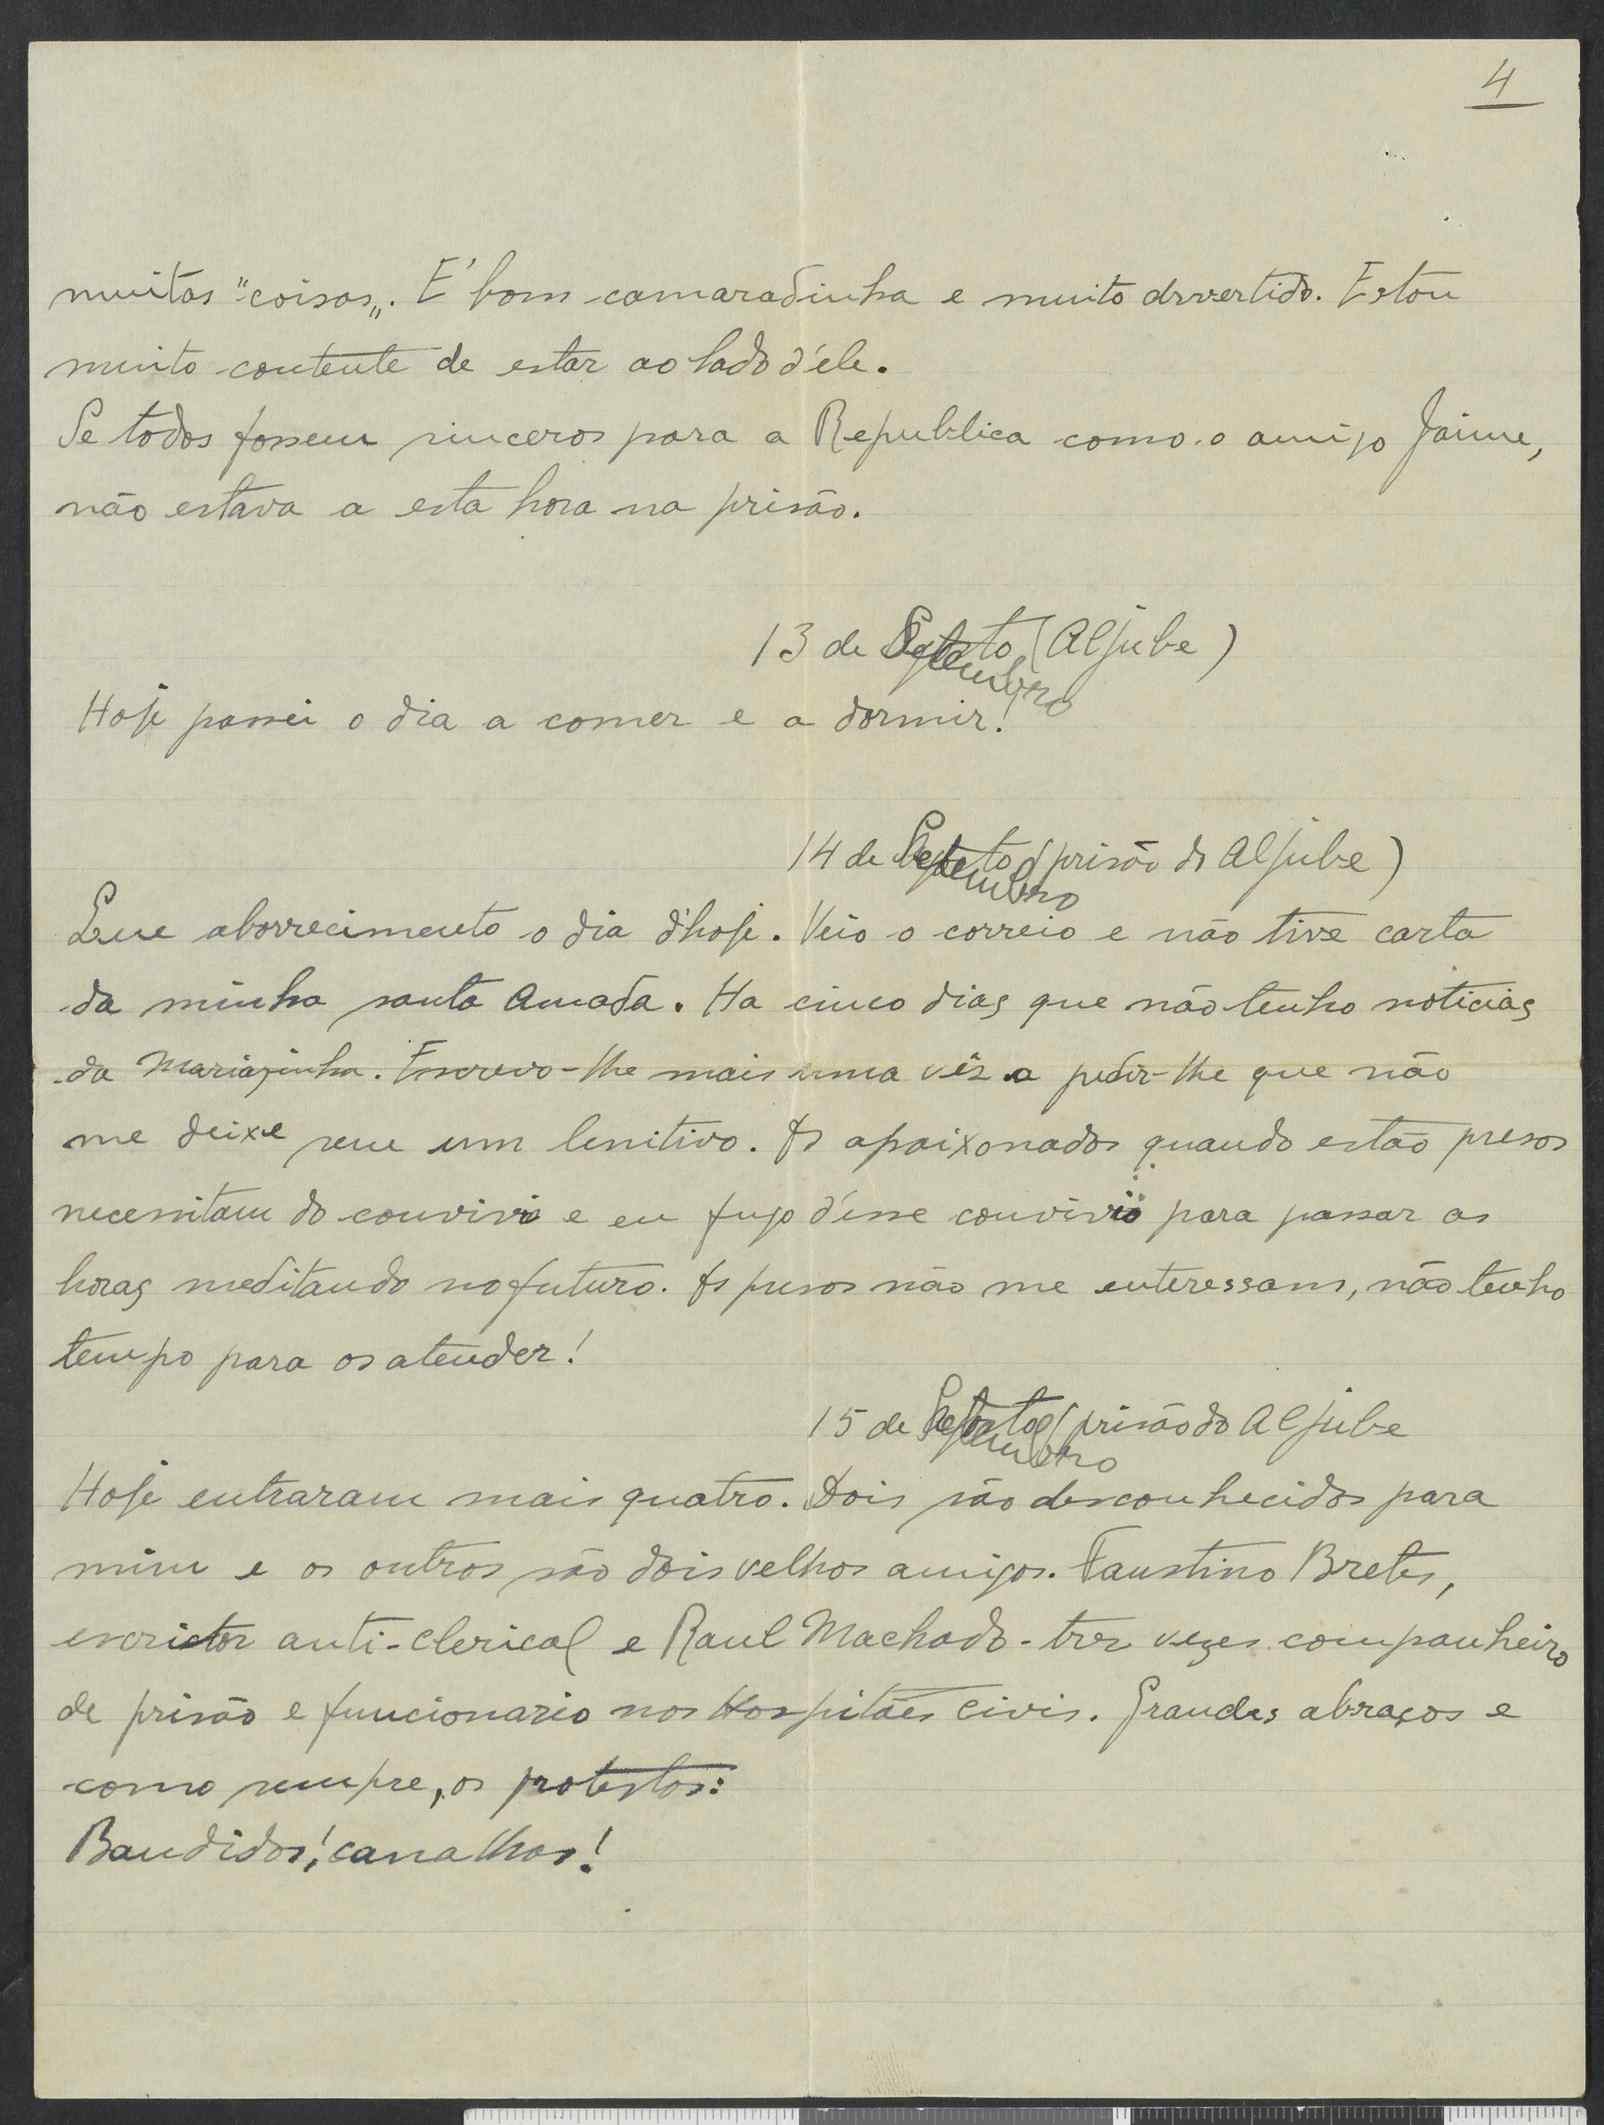 4
muitas "coisas„. E' bom camaradinha e muito divertido. Estou
muito contente de estar ao lado d'ele.
Se todos fossem sinceros para a Republica como o amigo Jaime,
não estava a esta hora na prisão.
13 de Setembro (Aljube)
Hoje passei o dia a comer e a dormir!
14 de Setembro (prisão do Aljube)
Que aborrecimento o dia d'hoje. Veio o correio e não tive carta
da minha santa Amada. Ha cinco dias que não tenho noticias
da Mariazinha. Escrevo-lhe mais uma vês a pedir-lhe que não
me deixe sem um lenitivo. Os apaixonados quando estão presos
necessitam do convivio e eu fujo d'esse convivio para passar as
horas meditando no futuro. Os presos não me enteressam, não tenho
tempo para os atender!
15 de Setembro (prisão do Aljube
Hoje entraram mais quatro. Dois são desconhecidos para
mim e os outros são dois velhos amigos. Faustino Bretes,
escrictor anti-clerical e Raul Machado - tres vezes companheiro
de prisão e funcionario nos Hospitáes Civis. Grandes abraços e
como sempre, os protestos:
Bandidos! canalhas!